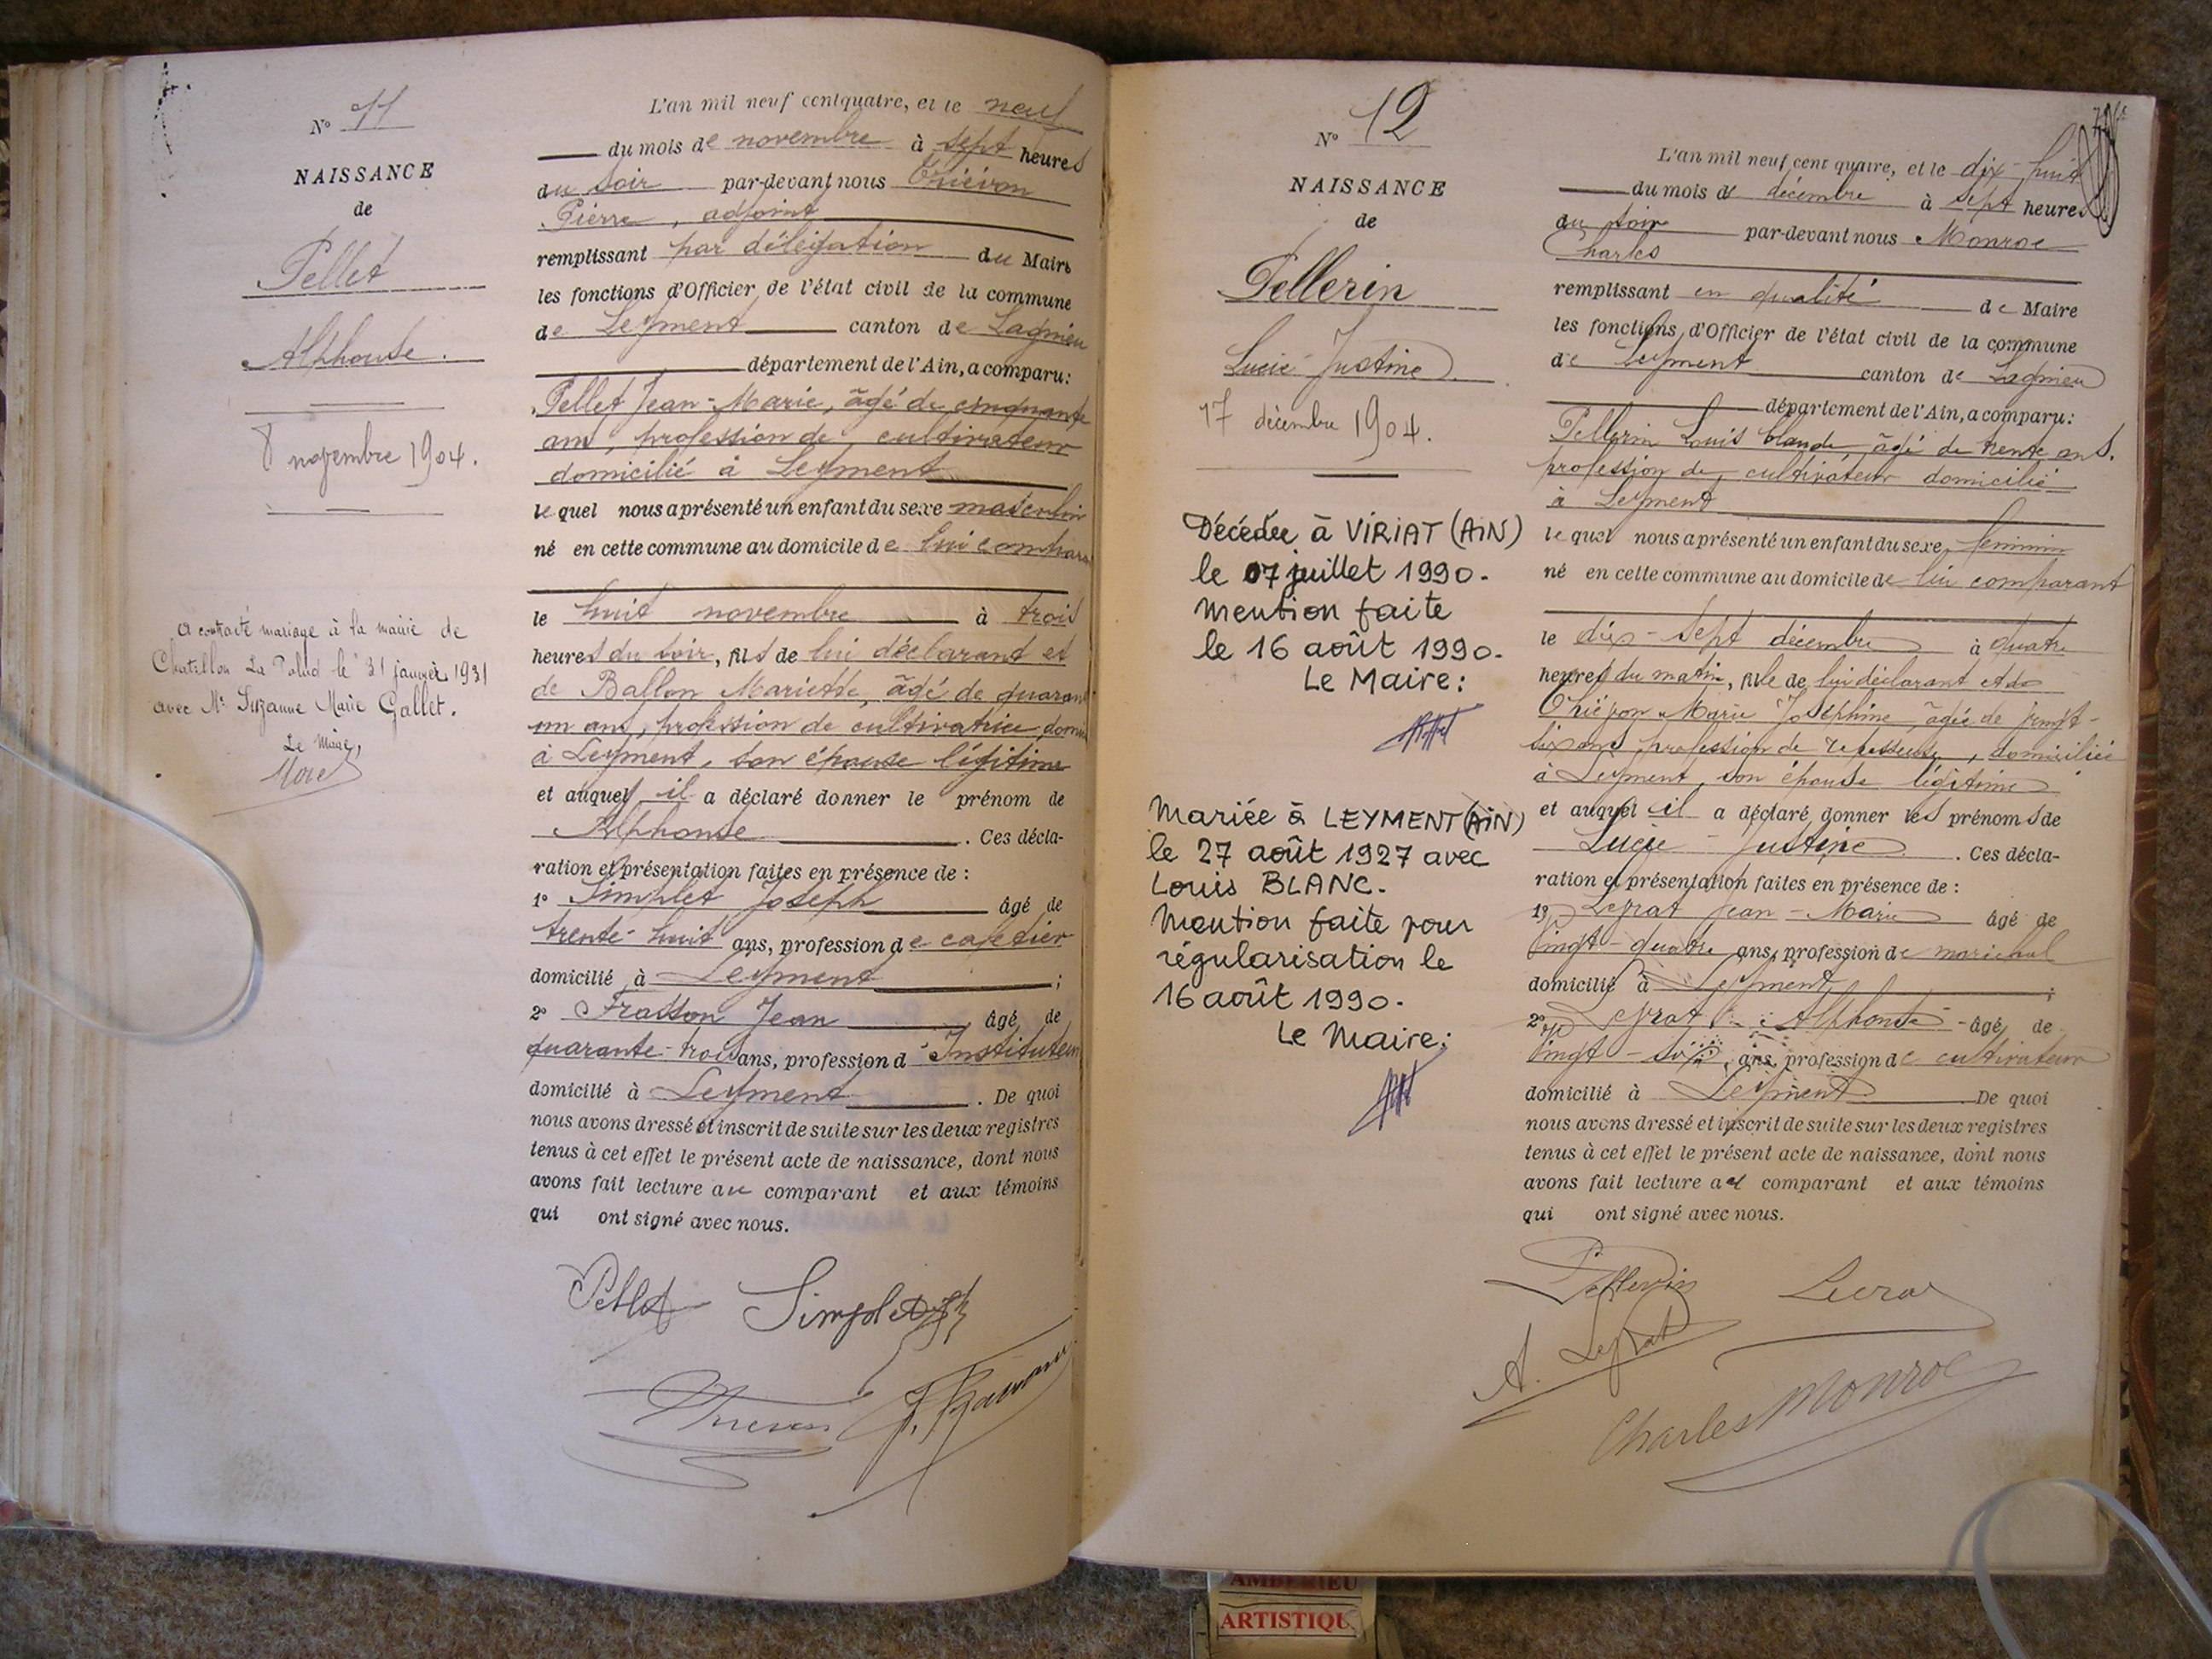 N° 11
NAISSANCE
de
Pellet
Alphonse.
8 novembre 1904.
A contracté mariage à la mairie de
Chatillon La Palud le 31 janvier 1931
avec Suzanne Marie Gallet.
Le Maire,
L'an mil neuf cent quatre, et le neuf
du mois de novembre à sept heures
du soir par-devant nous
Pierre, adjoint
remplissant par délégation du Maire
les fonctions d'Officier de l'état civil de la commune
de Leyment canton de Lagnieu
département de l'Ain, a comparu:
Pellet Jean-Marie, âgé de cinquante
ans, profession de cultivateur
domicilié à Leyment
lequel nous a présenté un enfant du sexe masculin
né en cette commune au domicile de lui
le huit novembre à trois
heures du soir, fils de lui déclarant et
de Ballon Mariette, âgé de
un ans, profession de cultivatrice
à Leyment, son épouse légitime
et auquel il a déclaré donner le prénom de
Alphonse. Ces décla-
ration et présentation faites en présence de :
1° Simplet Joseph âgé de
trente-huit ans, profession de cafetier
domicilié à Leyment ;
2° Frasson Jean âgé de
quarante-trois ans, profession d'Instituteur
domicilié à Leyment. De quoi
nous avons dressé et inscrit de suite sur les deux registres
tenus à cet effet le présent acte de naissance, dont nous
avons fait lecture au comparant et aux témoins
qui ont signé avec nous.
Pellet Simplet
N° 12
NAISSANCE
de
Pellerin
Lucie-Justine
17 décembre 1904.
Décédée à VIRIAT (AIN)
le 07 juillet 1990.
Mention faite
le 16 août 1990.
Le Maire:
Mariée à LEYMENT (AIN)
le 27 août 1927 avec
Louis BLANC.
Mention faite pour
régularisation le
16 août 1990.
Le Maire:
L'an mil neuf cent quatre, et le dix-huit
du mois de décembre à sept heures
du soir par-devant nous Monroe
Charles
remplissant en qualité de Maire
les fonctions d'Officier de l'état civil de la commune
de Leyment canton de Lagnieu
département de l'Ain, a comparu:
Pellerin Louis Claude, âgé de trente ans.
profession de cultivateur domicilié
à Leyment
lequel nous a présenté un enfant du sexe féminin
né en cette commune au domicile de lui comparant
le dix-sept décembre à quatre
heures du matin, fille de lui déclarant et de
Marie Joséphine, âgée de vingt-
six ans, profession de repasseuse, domiciliée
à Leyment, son épouse légitime
et auquel il a déclaré donner les prénoms de
Lucie-Justine. Ces décla-
ration et présentation faites en présence de :
1° Leyrat Jean-Marie âgé de
vingt-quatre ans, profession de maréchal
domicilié à Leyment ;
2° Leyrat Alphonse âgé de
vingt-six ans, profession de cultivateur
domicilié à Leyment De quoi
nous avons dressé et inscrit de suite sur les deux registres
tenus à cet effet le présent acte de naissance, dont nous
avons fait lecture au comparant et aux témoins
qui ont signé avec nous.
Pellerin
A. Leyrat
Charles Monroe
AMBERIEU
ARTISTIQU